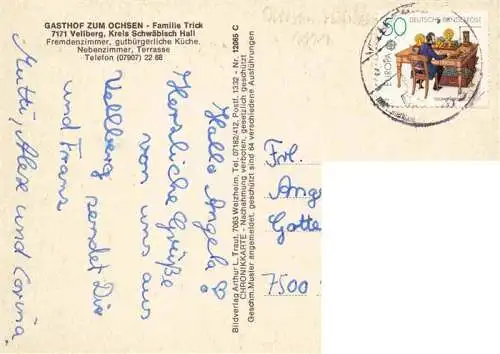 GASTHOF ZUM OCHSEN - Familie Trick
7171 Vellberg, Kreis Schwäbisch Hall
Fremdenzimmer, gutbürgerliche Küche,
Nebenzimmer, Terrasse
Telefon (07907) 22 88
Hallo Angela!
Herzliche Grüße
von uns aus
Vellberg sendet Dir
und Franz
Mutti, Alex und Corina
Bildverlag Arthur L. Traut, 7063 Welzheim, Tel. 07182/412, Postf. 1332 - Nr. 12065 C
CHRONIKKARTE - Nachahmung verboten, gesetzlich geschützt
Geschm.Muster angemeldet, geschützt sind 64 verschiedene Ausführungen
50
DEUTSCHE BUNDESPOST
EUROPA
Frl.
Ange
Gotte
7500